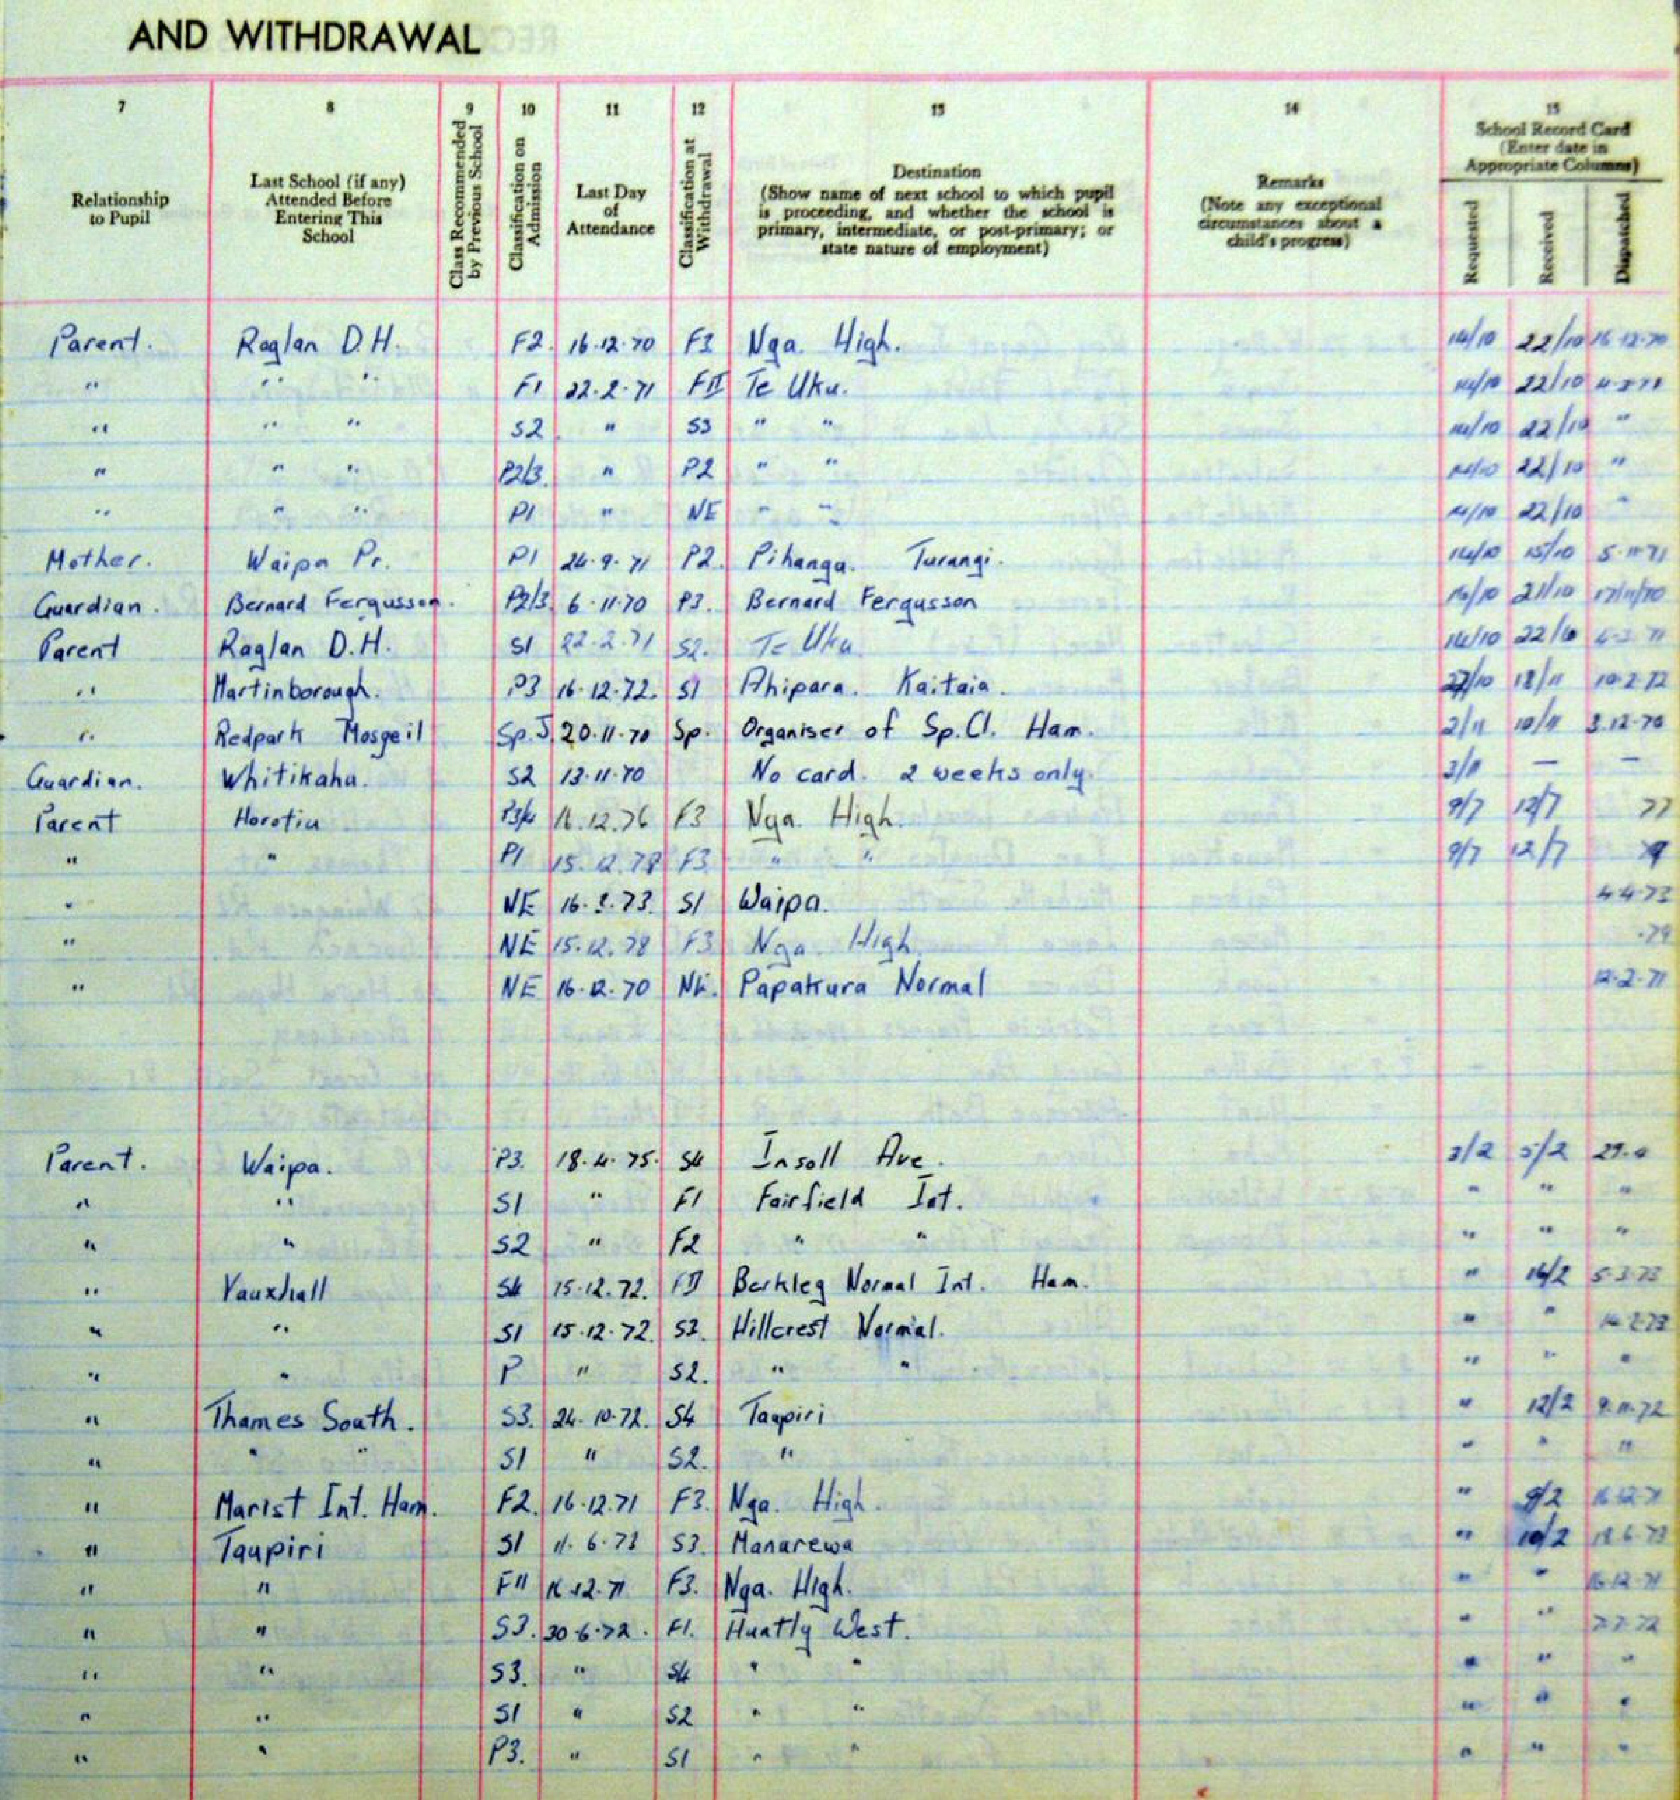 AND WITHDRAWAL
7 8 9 10 11 12 13 14 15
Relationship to Pupil
Last School (if any) Attended Before Entering This School
Class Recommended by Previous School
Classification on Admission
Last Day of Attendance
Classification at Withdrawal
Destination
(Show name of next school to which pupil is proceeding, and whether the school is primary, intermediate, or post-primary; or state nature of employment)
Remarks
(Note any exceptional circumstances about a child's progress)
School Record Card
(Enter date in Appropriate Columns)
Requested Received Dispatched
Parent. Raglan D.H. F2. 16.12.70 F3 Nga. High. 14/10 22/10 16.12.70
" " " F1 22.2.71 FII Te Uku. 14/10 22/10
" " " S2 " S3 " " 14/10 22/10 "
" " " P2/3. " P2 " " 14/10 22/10 "
" " " P1 " NE " " 14/10 22/10 "
Mother. Waipa Pr. P1 24.9.71 P2. Pihanga. Turangi. 14/10 15/10 5.11.71
Guardian. Bernard Fergusson. P2/3 6.11.70 P3. Bernard Fergusson 21/10 17/11/70
Parent Raglan D.H. S1 22.2.71 S2. Te Uku 14/10 22/10
" Martinborough. P3 16.12.72. S1 Ahipara. Kaitaia. 27/10 18/11 10.2.72
" Redpark Mosgeil Sp.J 20.11.70 Sp. Organiser of Sp.Cl. Ham. 2/11 10/11 3.12.70
Guardian. Whitikaha. S2 13.11.70 No card. 2 weeks only. 3/11 — —
Parent Horotiu P3/4 16.12.76 F3 Nga. High. 9/7 12/7 77
" " P1 15.12.78 F3 " " 9/7 12/7
" NE 16.3.73. S1 Waipa. 4.4.73
" NE 15.12.78 F3 Nga. High .79
" NE 16.12.70 NE. Papakura Normal 12.2.71
Parent. Waipa. P3. 18.4.75. S4 Insoll Ave. 3/2 5/2
" " S1 " F1 Fairfield Int. " " "
" " S2 " F2 " " " " "
" Vauxhall S4 15.12.72. FII Berkley Normal Int. Ham. " 16/2 5.3.73
" " S1 15.12.72. S3. Hillcrest Normal. " " 14.2.73
" " P " S2. " " " " "
" Thames South. S3. 24.10.72. S4 Taupiri " 12/2 9.11.72
" " " S1 " S2. " " " "
" Marist Int. Ham. F2. 16.12.71 F3. Nga. High. " 9/2 16.12.71
" Taupiri S1 11.6.73 S3. Manarewa " 10/2
" " FII 16.12.71 F3. Nga. High. " " 16.12.71
" " S3. 30.6.72. F1. Huntly West. " " 7.7.72
" " S3. " S4 " " " " "
" " S1 " S2 " " " " "
" " P3. " S1 " " " " "